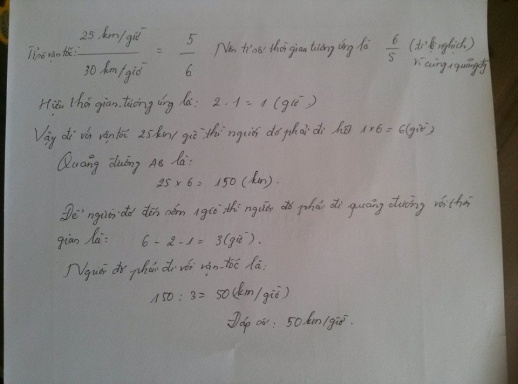 Tỉ số vận tốc: 25 km/giờ / 30 km/giờ = 5/6 Nên tỉ số thời gian tương ứng là 6/5 (tỉ lệ nghịch)
vì cùng 1 quãng đg
Hiệu thời gian tương ứng là: 2 - 1 = 1 (giờ)
Vậy đi với vận tốc 25km/giờ thì người đó phải đi hết 1x6 = 6(giờ)
Quãng đường AB là:
25 x 6 = 150 (km).
Để người đó đến sớm 1 giờ thì người đó phải đi quãng đường với thời
gian là: 6 - 2 - 1 = 3(giờ).
Người đó phải đi với vận tốc là:
150 : 3 = 50 (km/giờ)
Đáp số: 50 km/giờ.